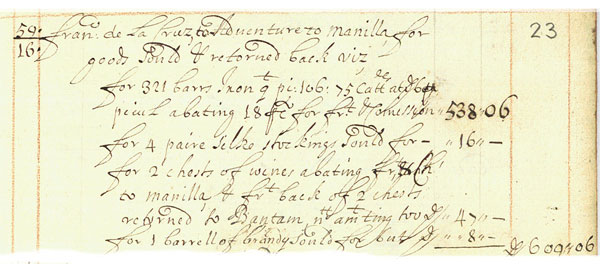 59: Fran: de La Cruz to Adventure to Manilla for 23
16: goods sould & returned back viz
for 321 barrs Iron qt pi: 106: 75 Catt at
picul abating 18 for frt & Comission 538 „ 06
for 4 paire Silke Stockings Sould for – „ 16 „ –
for 2 chests of wines abating frt
to manilla & frt back off 2 chests
returned to Bantam amting to „ 47 „ –
for 1 barrell of brandy sould for but „ 8 „ – 609 „ 06